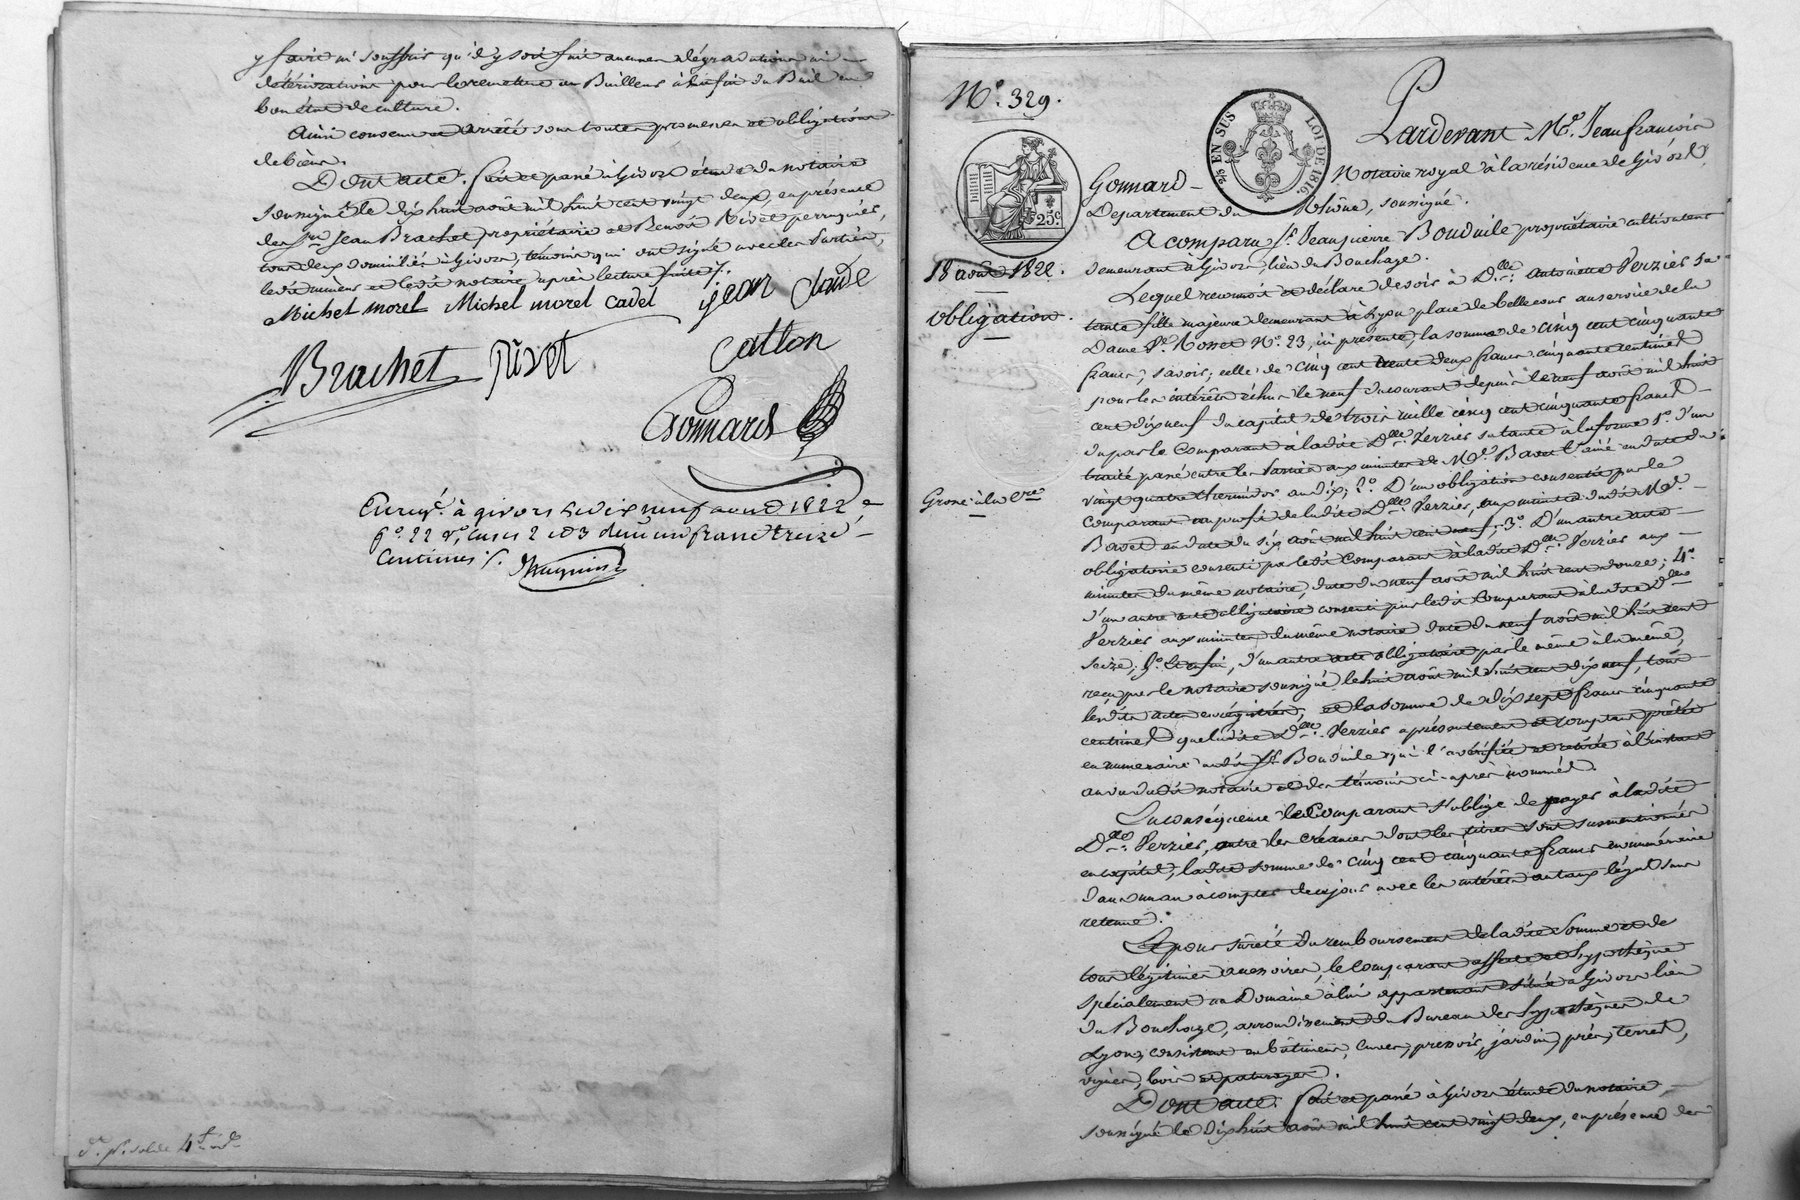 y faire ni souffrir qu'il y soit fait aucunes dégradations ni
détériorations pour le remettre au Bailleur à la fin du Bail en
bon état de culture.
Ainsi convenu et arrêté sous toutes promesses et obligations
de biens.
Dont acte. fait et passé à Givors étude du notaire
soussigné le dix huit août mil huit cent vingt deux, en présence
des Srs Jean Brachet propriétaire et Benoît Rivet perruquier,
tous deux domiciliés à Givors, témoins qui ont signé avec les Parties,
et ledit notaire après lecture faite /.
Michel morel Michel morel cadet jean claude
Brachet Rivet catton
Gonnard
Enregé. à givors le dix neuf aout 1822
fo. 22 Vo, cases 2 et 3 reçu un franc treize
Centimes /.
No. 329.
25 EN SUS LOI DE 1816.
25c.
Pardevant Me. Jean françois
Gonnard Notaire royal à la résidence de Givors
Département du Rhône, soussigné.
18 août 1822.
obligation.
A comparu Sr. Jean pierre Bouduile propriétaire cultivateur
demeurant à Givors, lieu du Bouchage.
Lequel reconnoit et déclare devoir à Dlle. Antoinette Verzier sa
tante fille majeure demeurant à Lyon place de bellecour au service de la
Dame Ve. Rosset No. 23, ici présente, la somme de cinq cent cinquante
francs, savoir; celle de cinq cent trente deux francs cinquante centimes
pour les intérêts échus le neuf du courant depuis le neuf août mil huit
cent dix neuf du capital de trois mille cinq cent cinquante francs
du par le Comparant à ladite Dlle. Verzier sa tante à la forme 1o. d'un
traité passé entre les Parties aux minutes de Me. Bavet l'ainé en date du
vingt quatre thermidor an dix; 2o. D'un obligation consentie par le
Grosse à la Cre
comparant au profit de ladite Dlle. Verzier, aux minutes dudit Me.
Bavet en date du six août mil huit cent neuf; 3o. D'un autre acte
obligatoire consenti par ledit Comparant à ladite Dlle. Verzier aux
minutes du même notaire, date du neuf août mil huit cent douze; 4o.
d'un autre acte obligatoire consenti par ledit Comparant à ladite Dlle
Verzier aux minutes du même notaire date du neuf août mil huit cent
seize; 5o. Et enfin, d'un autre acte obligatoire par le même à la même,
reçu par le notaire soussigné le huit août mil huit cent dix neuf, tous
lesdits actes enregistrés; et la somme de dix sept francs cinquante
centimes que ladite Dlle. Verzier a présentement et comptant prêtée
en numéraire audit Sr. Bouduile qui l'a vérifiée et retirée à l'instant
au vu dudit notaire et des témoins ci-après nommés.
En conséquence le Comparant s'oblige de payer à ladite
Dlle. Verzier, outre les créances dont les titres sont susmentionnés
en capital, ladite somme de cinq cent cinquante francs en numéraire
dans un an à compter de ce jour avec les intérêts au taux légal sans
retenue.
Et pour sûreté du remboursement de ladite Somme et de
tous légitimes accessoires, le Comparant affecte et hypothèque
spécialement un Domaine à lui appartenant situé à Givors lieu
du Bouchage, arrondissement du Bureau des hypothèques de
Lyon, consistant en bâtimens, cuves, pressoir, jardin, prés, terres,
vignes, bois et paturages.
Dont acte. fait et passé à Givors étude du notaire
soussigné le dix huit août mil huit cent vingt deux, en présence des